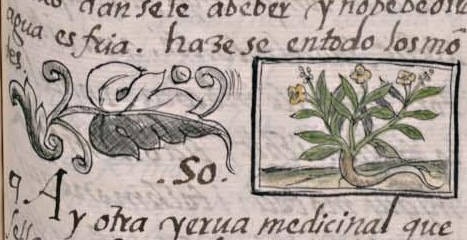 dansele abeber y nopedeoru
agua es fria. haze se entodo losmō
tes.
.So.
q. Ay otra yerua medicinal que